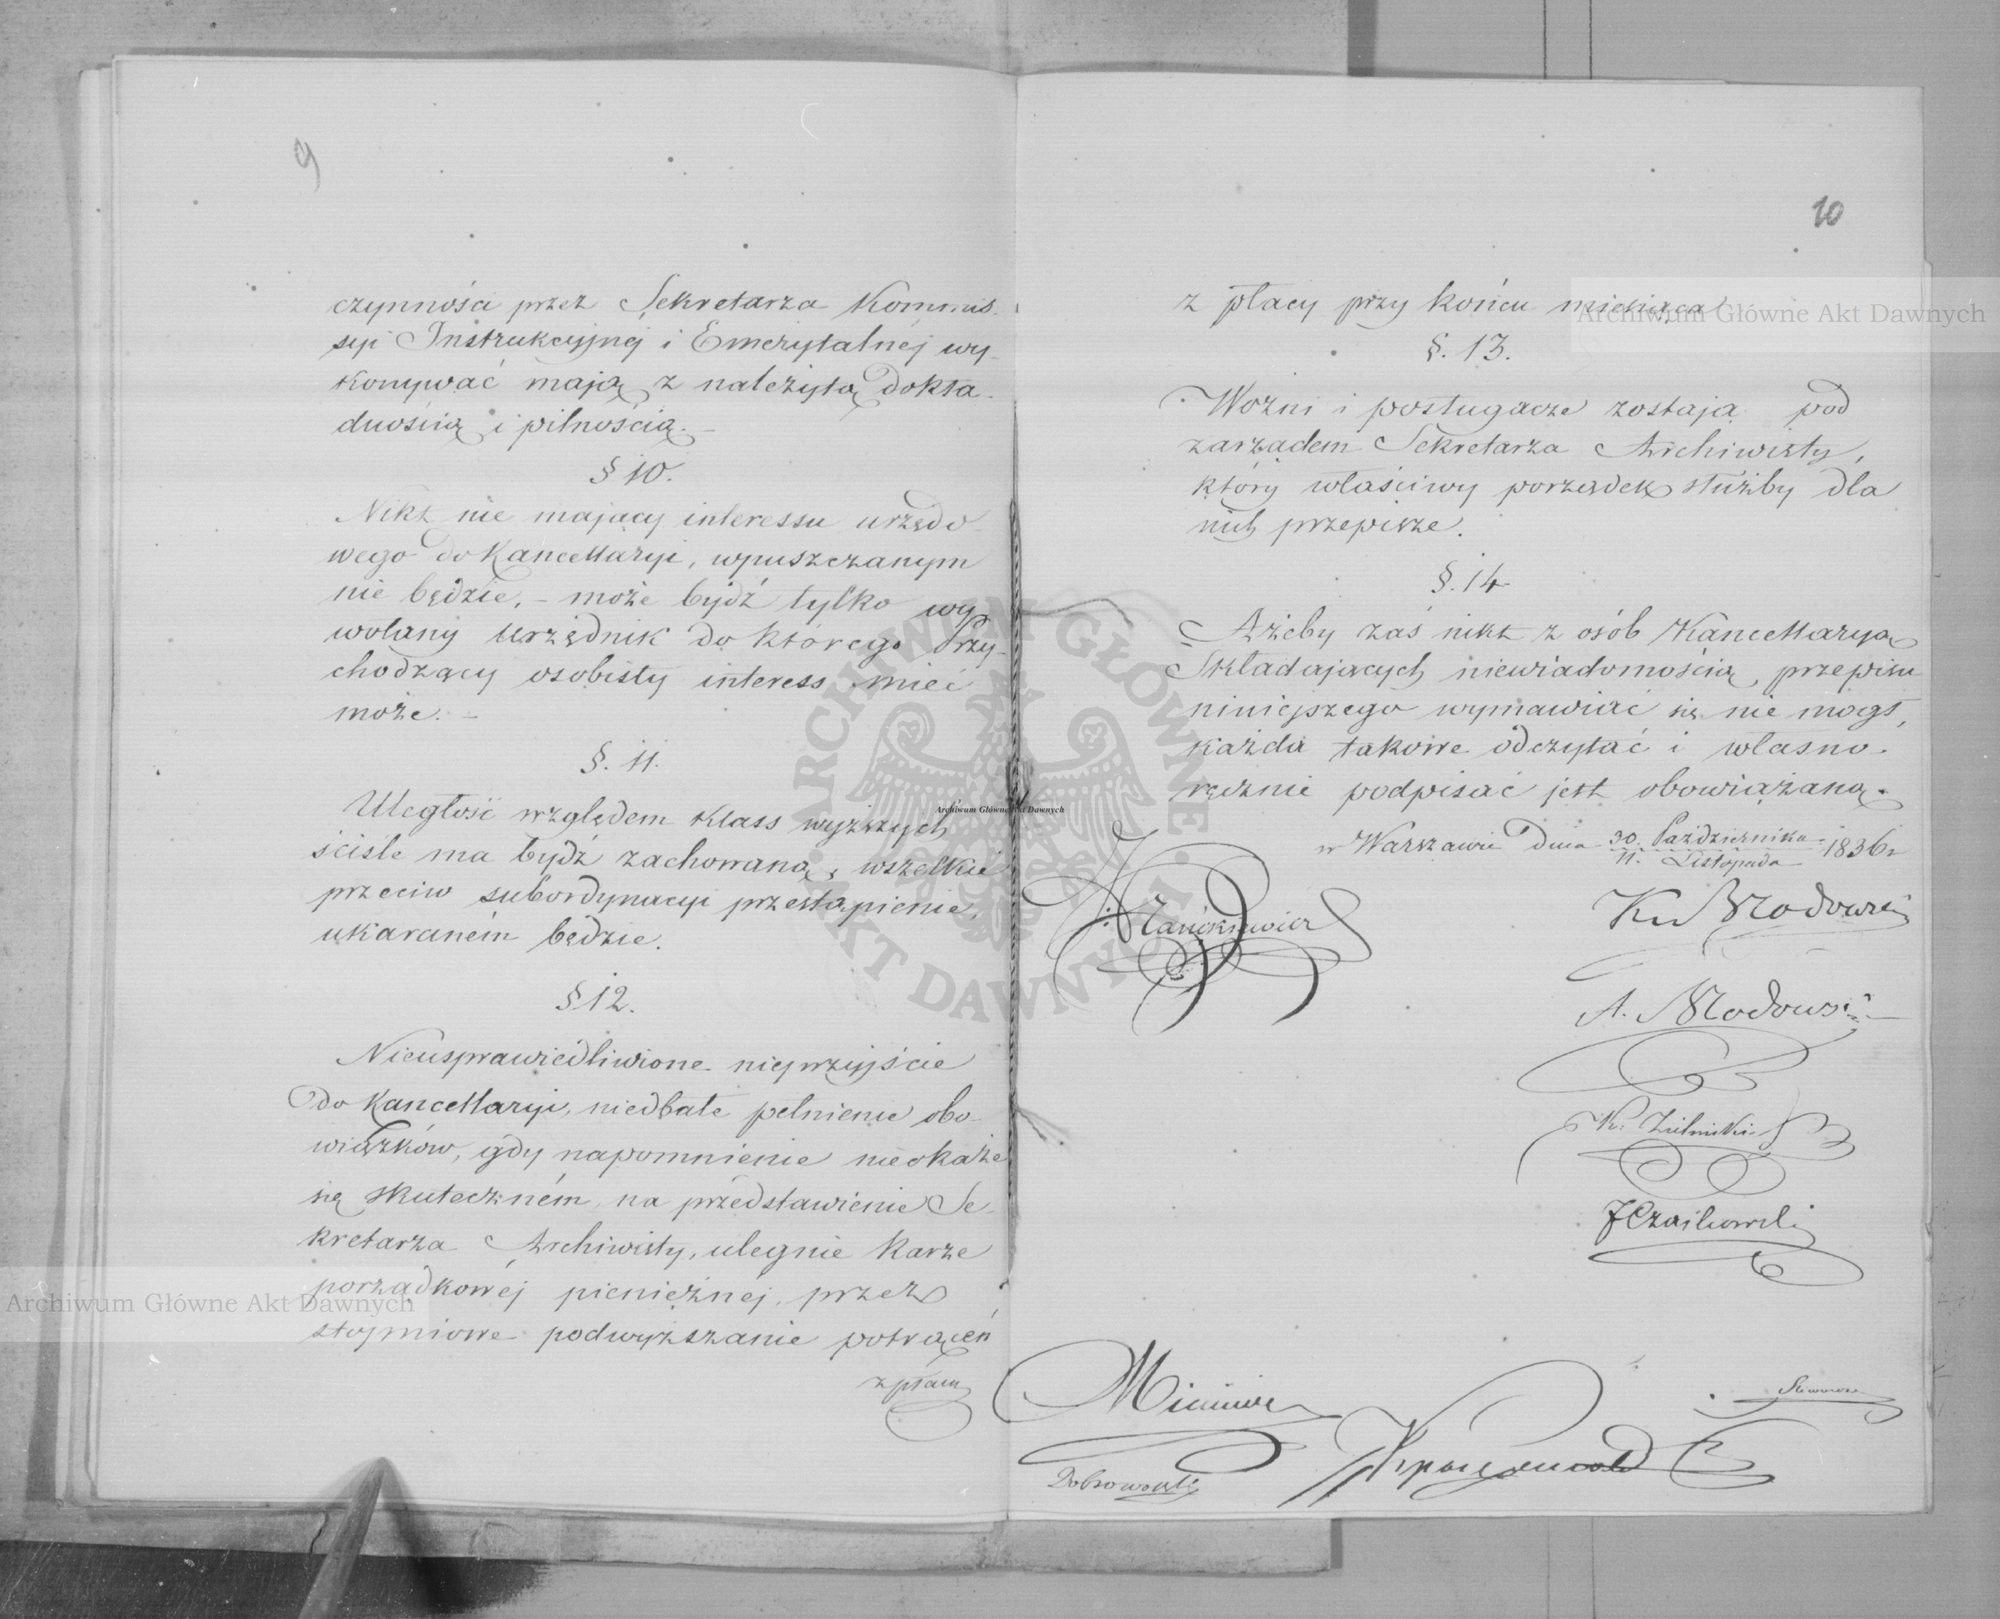 9
czynności przez Sekretarza Kommis-
syi Instrukcyjnéj i Emerytalnéj wy-
konywać mają z należytą dokła-
dnością i pilnością.-
§ 10.
Nikt nie mający interessu urzędo-
wego do Kancellaryi, wpuszczanym
nie będzie, - może bydź tylko wy
wołany Urzędnik do którego Przy-
chodzący osobisty interess mieć
może. -
§. 11.
Uległość względem Klass wyższych
ściśle ma bydź zachowaną, wszelkie
przeciw subordynacyi przestąpienie,
ukaraném będzie.
§ 12.
Nieusprawiedliwione nieprzyjście
do Kancellaryi, niedbałe pełnienie obo-
wiązków, gdy napomnienie nieokaże
się skuteczném, na przedstawienie Se-
kretarza Archiwisty, ulegnie karze
porządkowéj pieniężnéj, przez
stopniowe podwyższanie potrąceń
z płacy
10
z płacy przy końcu miesiąca
§. 13.
Woźni i posługacze zostają pod
zarządem Sekretarza Archiwisty,
który właściwy porządek służby dla
nich przepisze.
§. 14
Ażeby zaś nikt z osób Kancellaryą
Składających niewiadomością przepisu
niniejszego wymawiać się nie mógł,
każda takowe odczytać i własno-
ręcznie podpisać jest obowiązaną.
w Warszawie Dnia 30. Października 1836 r
11. Listopada
A. Modowski
Dobrowolski
Archiwum Główne Akt Dawnych
Archiwum Główne Akt Dawnych
Archiwum Główne Akt Dawnych
ARCHIWUM GŁÓWNE AKT DAWNYCH